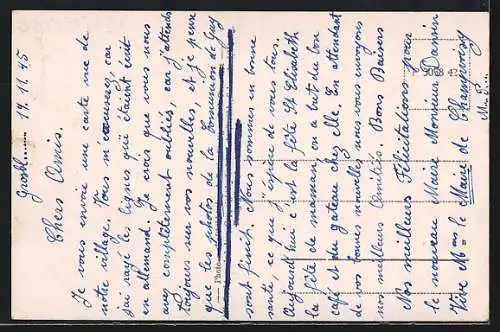 Grabh...... 19.11.45
Chers Amis.
Je vous envoie une carte vue de
notre village. Vous m'excuserez, car
j'ai rayé les lignes qui étaient écrit
en allemand. Je crois que vous nous
avez complètement oubliés, car j'attends
toujours sur vos nouvelles, et je pense
que les photos de la Communion de Guy
sont finit. Nous sommes en bonne
santé, ce que j'espère de vous tous.
Aujourd'hui c'est la fête St Elisabeth
la fête de maman, on a but du bon
café et du gateau chez elle. En attendant
de vos bonnes nouvelles nous vous envoyons
nos meilleurs Amitiés. Bons Baisers
Nos meilleurs Félicitations pour
le nouveau Maire Monsieur Damin
Vive M le Maire de Champvoisy
Photo
9008 42